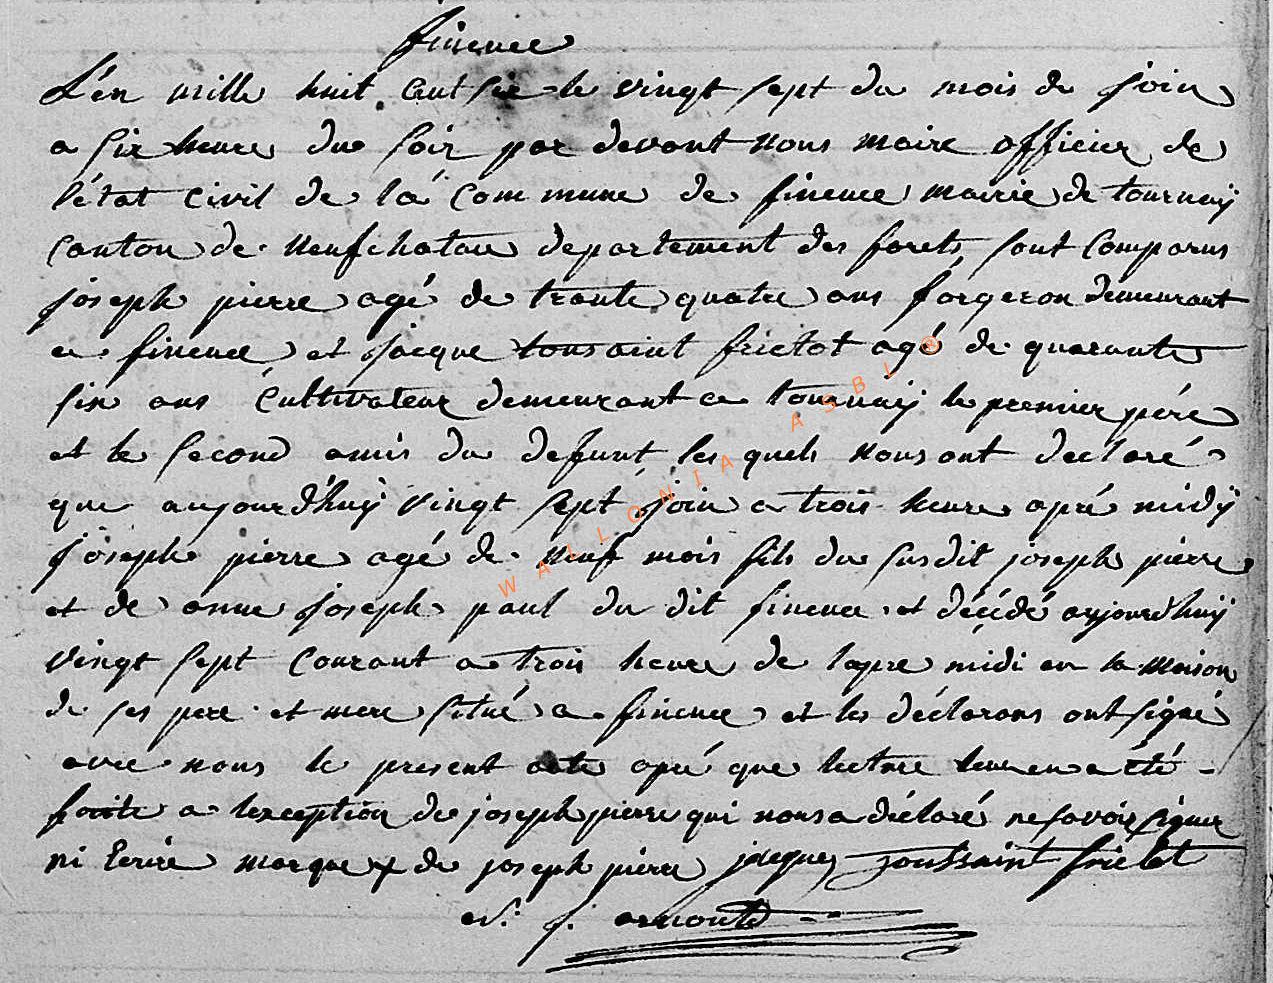 finence
L'én mille huit cent six le vingt sept du mois de join
a six heure du soir par devant nous maire officier de
l'état civil de la commune de finence mairie de tournaÿ
canton de neufchatau departement des forets sont comparus
joseph pierre agé de trante quatre ans forgeron demeurant
a finence et jacque tousaint frictot agé de quarante
six ans cultivateur demeurant a tournaÿ le premier père
et le second amis du defunt les quels nous ont declaré
que aujourd'huÿ vingt sept join a trois heure apré midÿ
joseph pierre agé de neuf mois fils du susdit joseph pierre
et de anne joseph paul du dit finence et décédé aujourdhuÿ
vingt sept courant a trois heure de lapre midi en la maison
de ses pere et mere situé a finence et les déclarans ont signé
avec nous le present acte apré que lecture leur en a été
faite a lexception de joseph pierre qui nous a déclaré ne savoir signer
ni Ecrire marque x de joseph pierre jacques toussaint frictot
j. arnould
WALLONIA ASBL ®